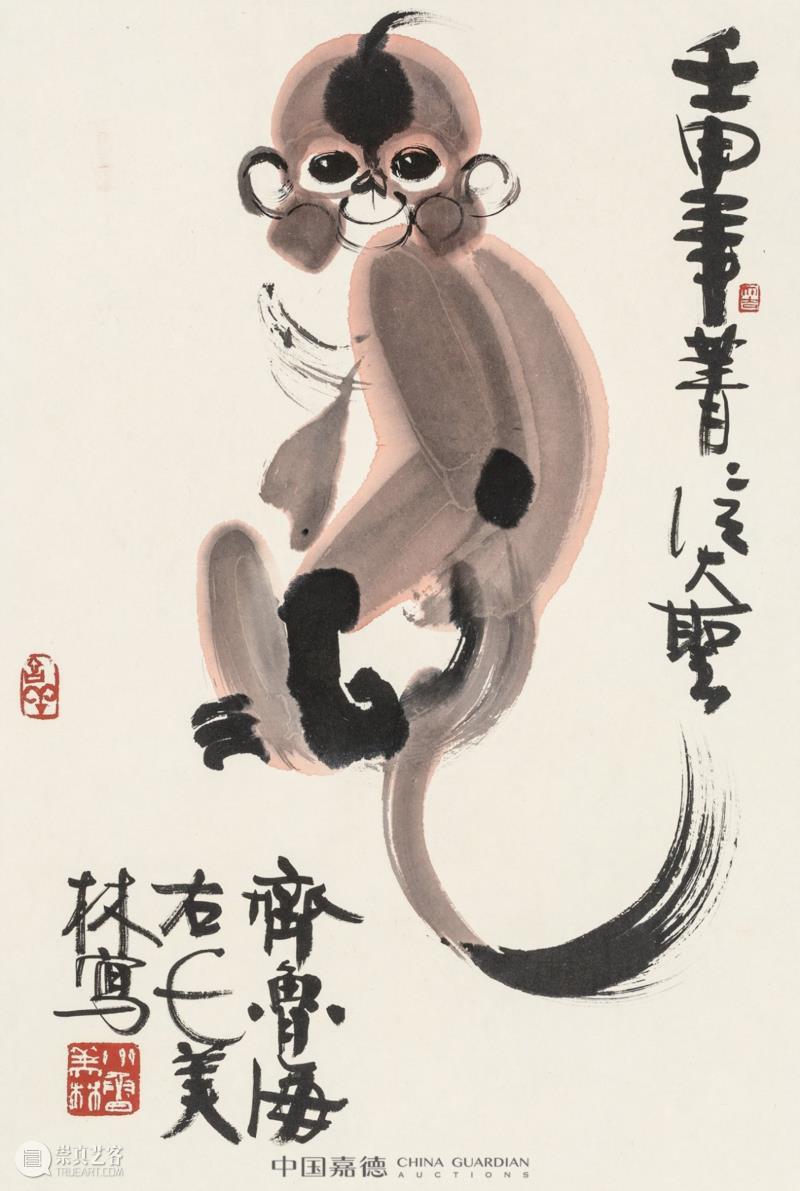 壬申年菁大聖
齊魯海
右美
林寫
崇真艺客
WWW.TRUEART.COM
中国嘉德 CHINA GUARDIAN
AUCTIONS